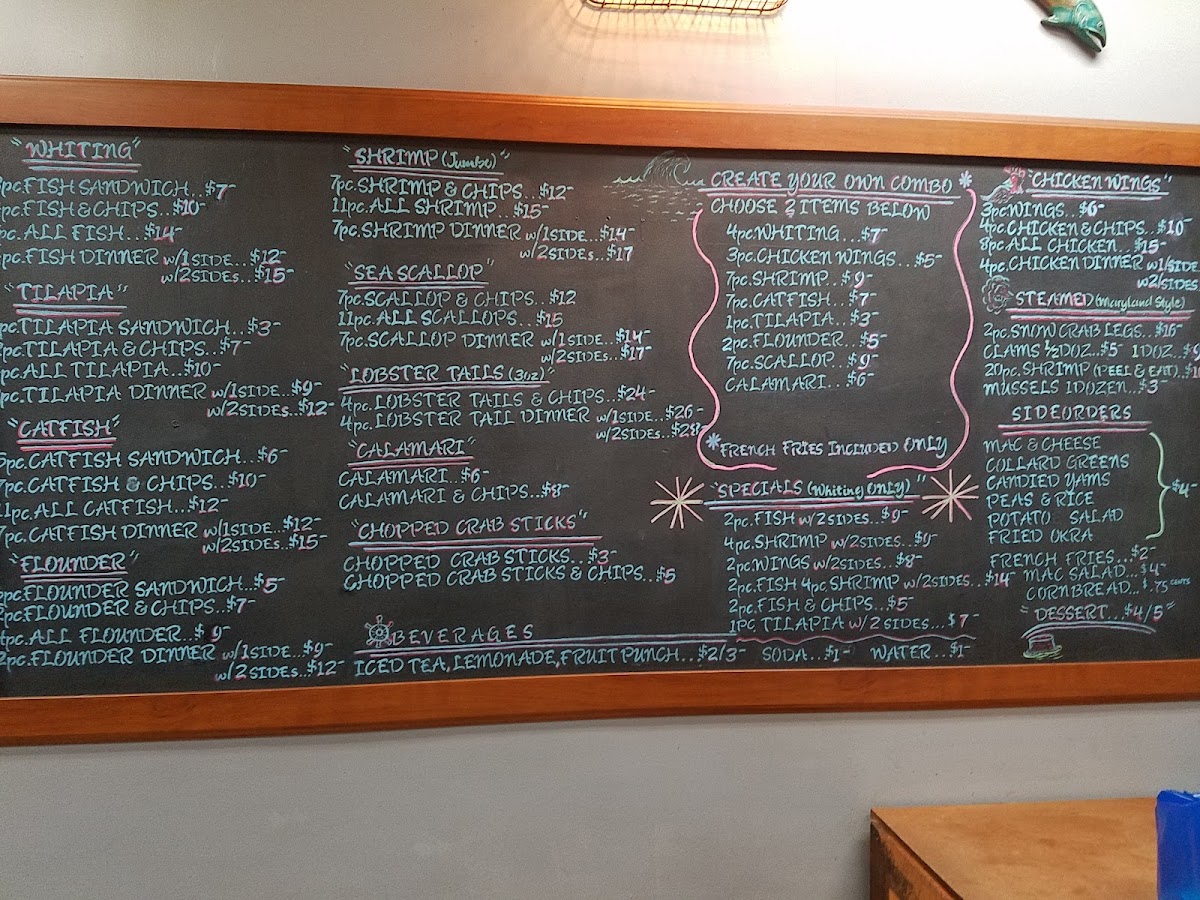 "WHITING"
pc.FISH SANDWICH...$7-
pc.FISH & CHIPS..$10-
pc.ALL FISH...$14-
pc.FISH DINNER w/1SIDE...$12-
w/2SIDEs...$15-
"TILAPIA"
pc.TILAPIA SANDWICH...$3-
pc.TILAPIA & CHIPS...$7-
pc.ALL TILAPIA...$10-
pc.TILAPIA DINNER w/1SIDE...$9-
w/2SIDEs..$12-
"CATFISH"
pc.CATFISH SANDWICH...$6-
7pc.CATFISH & CHIPS...$10-
11pc.ALL CATFISH...$12-
7pc.CATFISH DINNER w/1SIDE...$12-
w/2SIDEs...$15-
"FLOUNDER"
pc.FLOUNDER SANDWICH...$5-
pc.FLOUNDER & CHIPS...$7-
pc.ALL FLOUNDER..$9-
2pc.FLOUNDER DINNER w/1SIDE...$9-
w/2SIDEs...$12-
"SHRIMP (Jumbo)"
7pc.SHRIMP & CHIPS...$12-
11pc.ALL SHRIMP...$15-
7pc.SHRIMP DINNER w/1SIDE...$14-
w/2SIDEs...$17
"SEA SCALLOP"
7pc.SCALLOP & CHIPS...$12
11pc.ALL SCALLOPS...$15
7pc.SCALLOP DINNER w/1SIDE...$14-
w/2SIDEs...$17-
"LOBSTER TAILS (3oz)"
4pc.LOBSTER TAILS & CHIPS...$24-
4pc.LOBSTER TAIL DINNER w/1SIDE...$26-
w/2SIDEs...$28-
"CALAMARI"
CALAMARI...$6-
CALAMARI & CHIPS...$8-
"CHOPPED CRAB STICKS"
CHOPPED CRAB STICKS...$3-
CHOPPED CRAB STICKS & CHIPS..$5
BEVERAGES
ICED TEA, LEMONADE, FRUIT PUNCH...$2/3- SODA...$1- WATER...$1-
CREATE YOUR OWN COMBO*
CHOOSE 2 ITEMS BELOW
4pc.WHITING...$7-
3pc.CHICKEN WINGS...$5-
7pc.SHRIMP...$9-
7pc.CATFISH...$7-
1pc.TILAPIA...$3-
2pc.FLOUNDER...$5-
7pc.SCALLOP...$9-
CALAMARI...$6-
*FRENCH FRIES INCLUDED ONLY
"SPECIALS (Whiting ONLY)"
2pc.FISH w/2SIDEs...$9-
4pc.SHRIMP w/2SIDEs...
2pc.WINGS w/2SIDEs...$8-
2pc.FISH 4pc SHRIMP w/2SIDEs...$14-
2pc.FISH & CHIPS...$5-
1pc TILAPIA w/2 SIDES..$7-
"CHICKEN WINGS"
3pc.WINGS..$6-
4pc.CHICKEN & CHIPS...$10-
8pc.ALL CHICKEN...$15-
4pc.CHICKEN DINNER w/1SIDE
w/2SIDES
STEAMED (Maryland Style)
2pc.SNOW CRAB LEGS...$16-
CLAMS ½DOZ..$5- 1DOZ..$9
20pc.SHRIMP (PEEL & EAT)..
MUSSELS 1DOZEN..$3-
SIDE ORDERS
MAC & CHEESE
COLLARD GREENS
CANDIED YAMS
PEAS & RICE
POTATO SALAD
FRIED OKRA
$4-
FRENCH FRIES...$2-
MAC SALAD...$4-
CORNBREAD...$.75 CENTS
"DESSERT...$4/5"